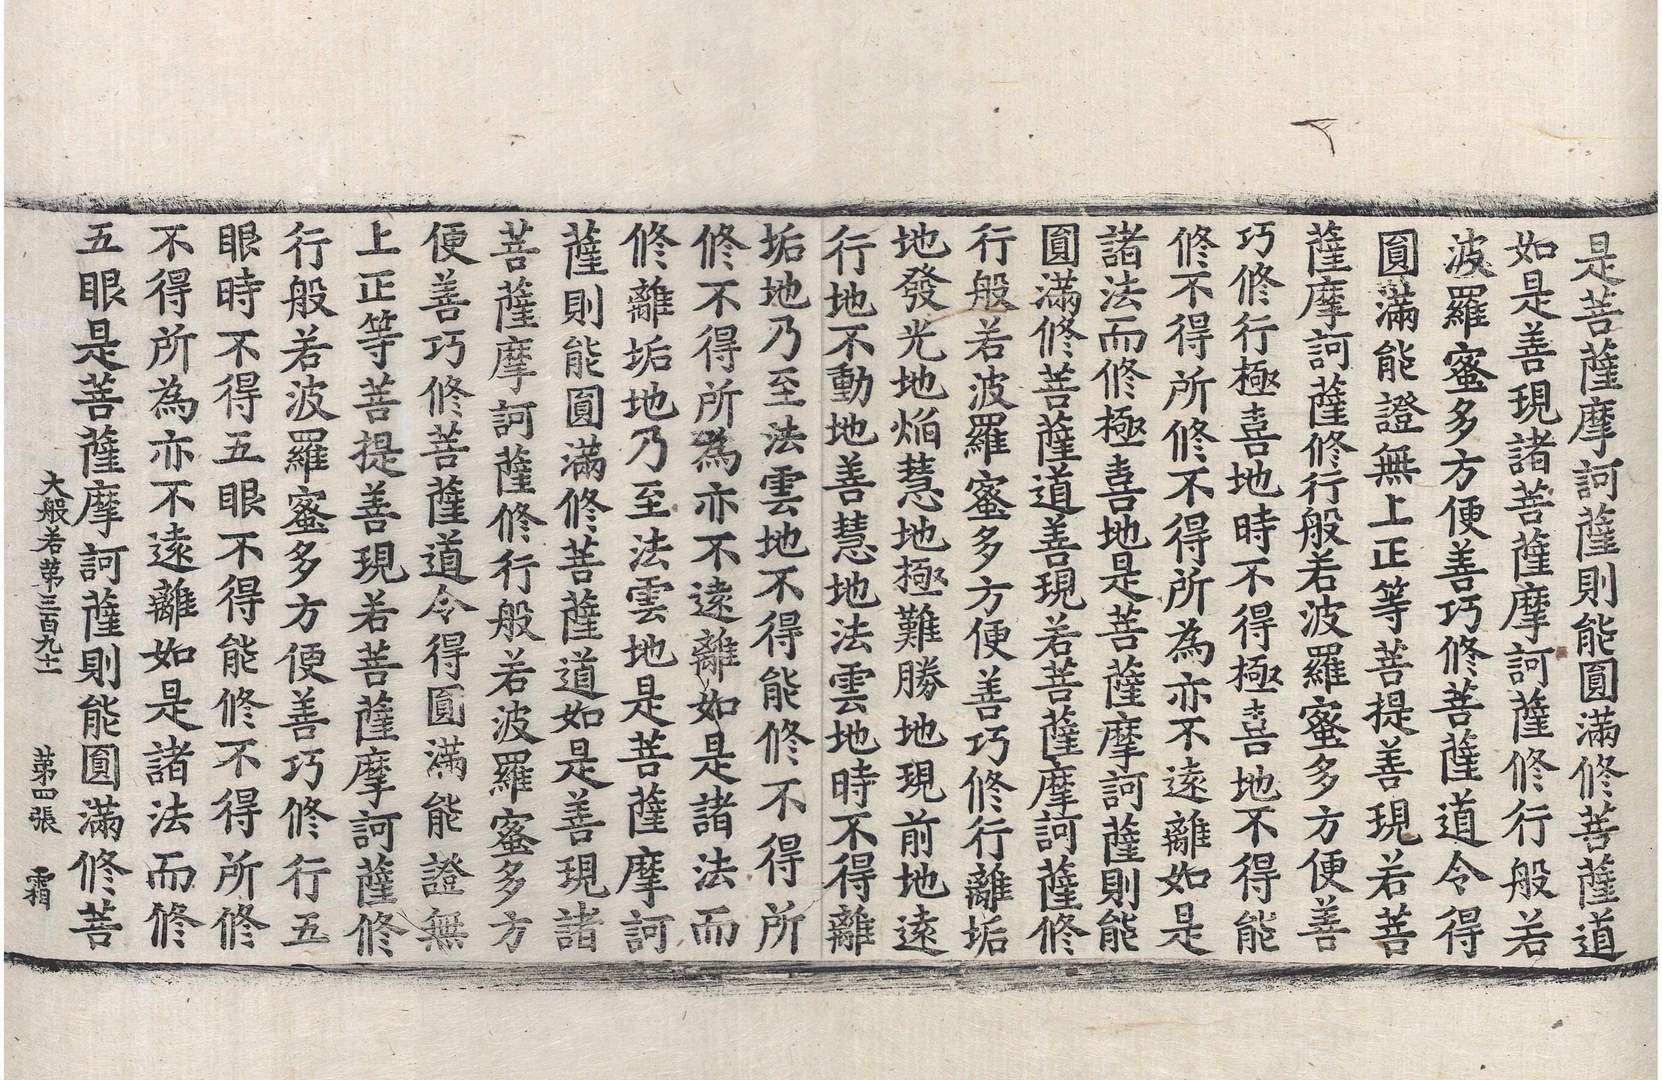 是菩薩摩訶薩則能圓滿修菩薩道
如是善現諸菩薩摩訶薩修行般若
波羅蜜多方便善巧修菩薩道令得
圓滿能證無上正等菩提善現若菩
薩摩訶薩修行般若波羅蜜多方便善
巧修行極喜地時不得極喜地不得能
修不得所修不得所為亦不遠離如是
諸法而修極喜地是菩薩摩訶薩則能
圓滿修菩薩道善現若菩薩摩訶薩修
行般若波羅蜜多方便善巧修行離垢
地發光地焰慧地極難勝地現前地遠
行地不動地善慧地法雲地時不得離
垢地乃至法雲地不得能修不得所
修不得所為亦不遠離如是諸法而
修離垢地乃至法雲地是菩薩摩訶
薩則能圓滿修菩薩道如是善現諸
菩薩摩訶薩修行般若波羅蜜多方
便善巧修菩薩道令得圓滿能證無
上正等菩提善現若菩薩摩訶薩修
行般若波羅蜜多方便善巧修行五
眼時不得五眼不得能修不得所修
不得所為亦不遠離如是諸法而修
五眼是菩薩摩訶薩則能圓滿修菩
大般若第三百九十一 第四張 霜